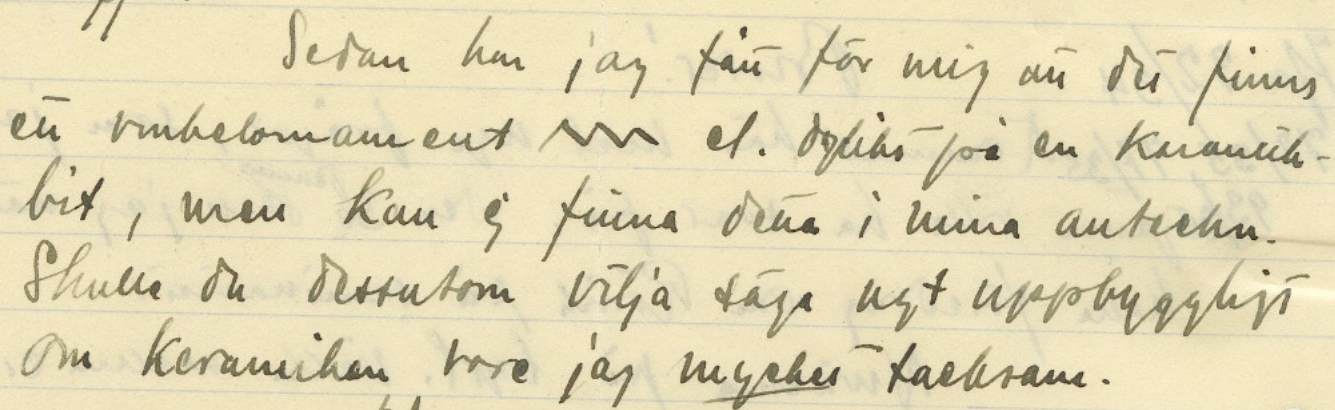 Sedan har jag fått för mig att det finns
ett vinkelornament et. dylikt på en keramik-
bit, men kan ej finna detta i mina anteckn.
Skulle du dessutom vilja säga ngt uppbyggligt
om keramiken vore jag mycket tacksam.